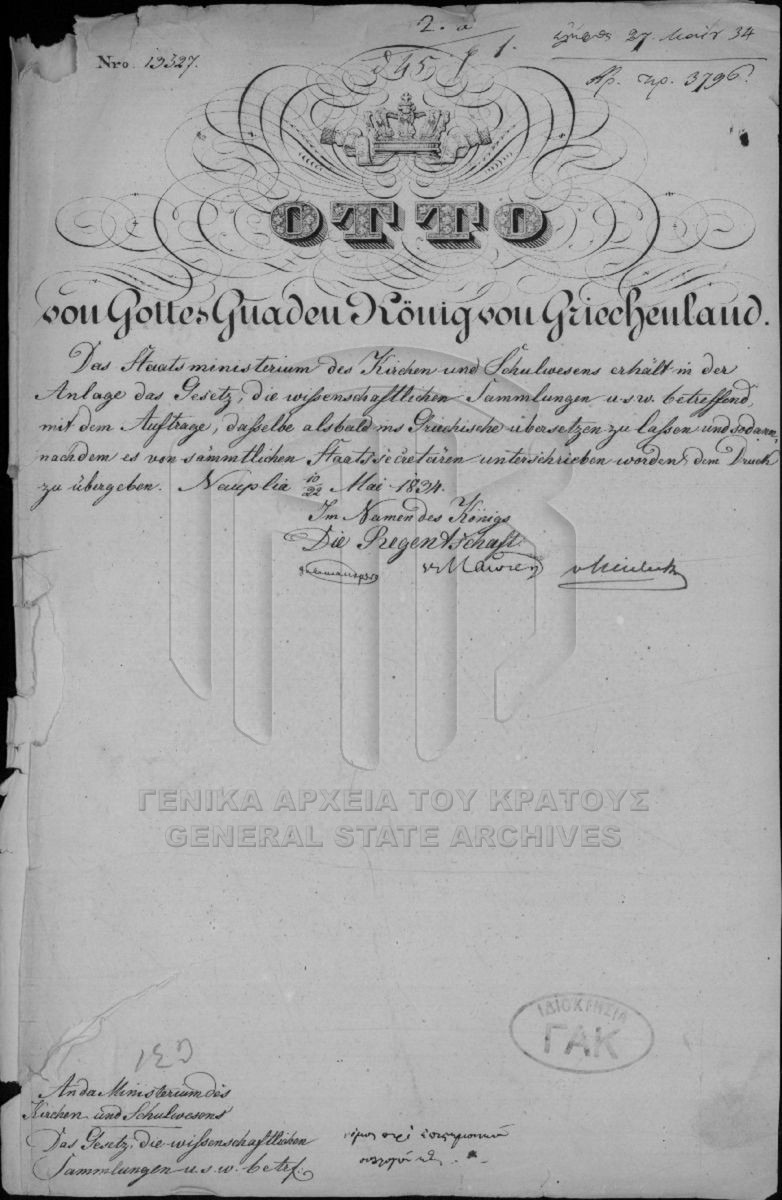 2. a
27. Μαΐου 34
Nro. 19327.
845
1.
Ἀρ. πρ. 3796.
OTTO
von Gottes Gnaden König von Griechenland.
Das Staatsministerium des Kirchen und Schulwesens erhält in der
Anlage das Gesetz, die wissenschaftlichen Sammlungen u.s.w. betreffend,
mit dem Auftrage, dasselbe alsbald ins Griechische übersetzen zu lassen und sodann,
nachdem es von sämmtlichen Staatssecretären unterschrieben worden, dem Druck
zu übergeben. Nauplia 10/22 Mai 1834.
Im Namen des Königs
Die Regentschaft
v Maurer
ΓΕΝΙΚΑ ΑΡΧΕΙΑ ΤΟΥ ΚΡΑΤΟΥΣ
GENERAL STATE ARCHIVES
ΙΔΙΟΚΤΗΣΙΑ
ΓΑΚ
An da Ministerium des
Kirchen und Schulwesens
Das Gesetz, die wissenschaftlichen
Sammlungen u.s.w. betrf.